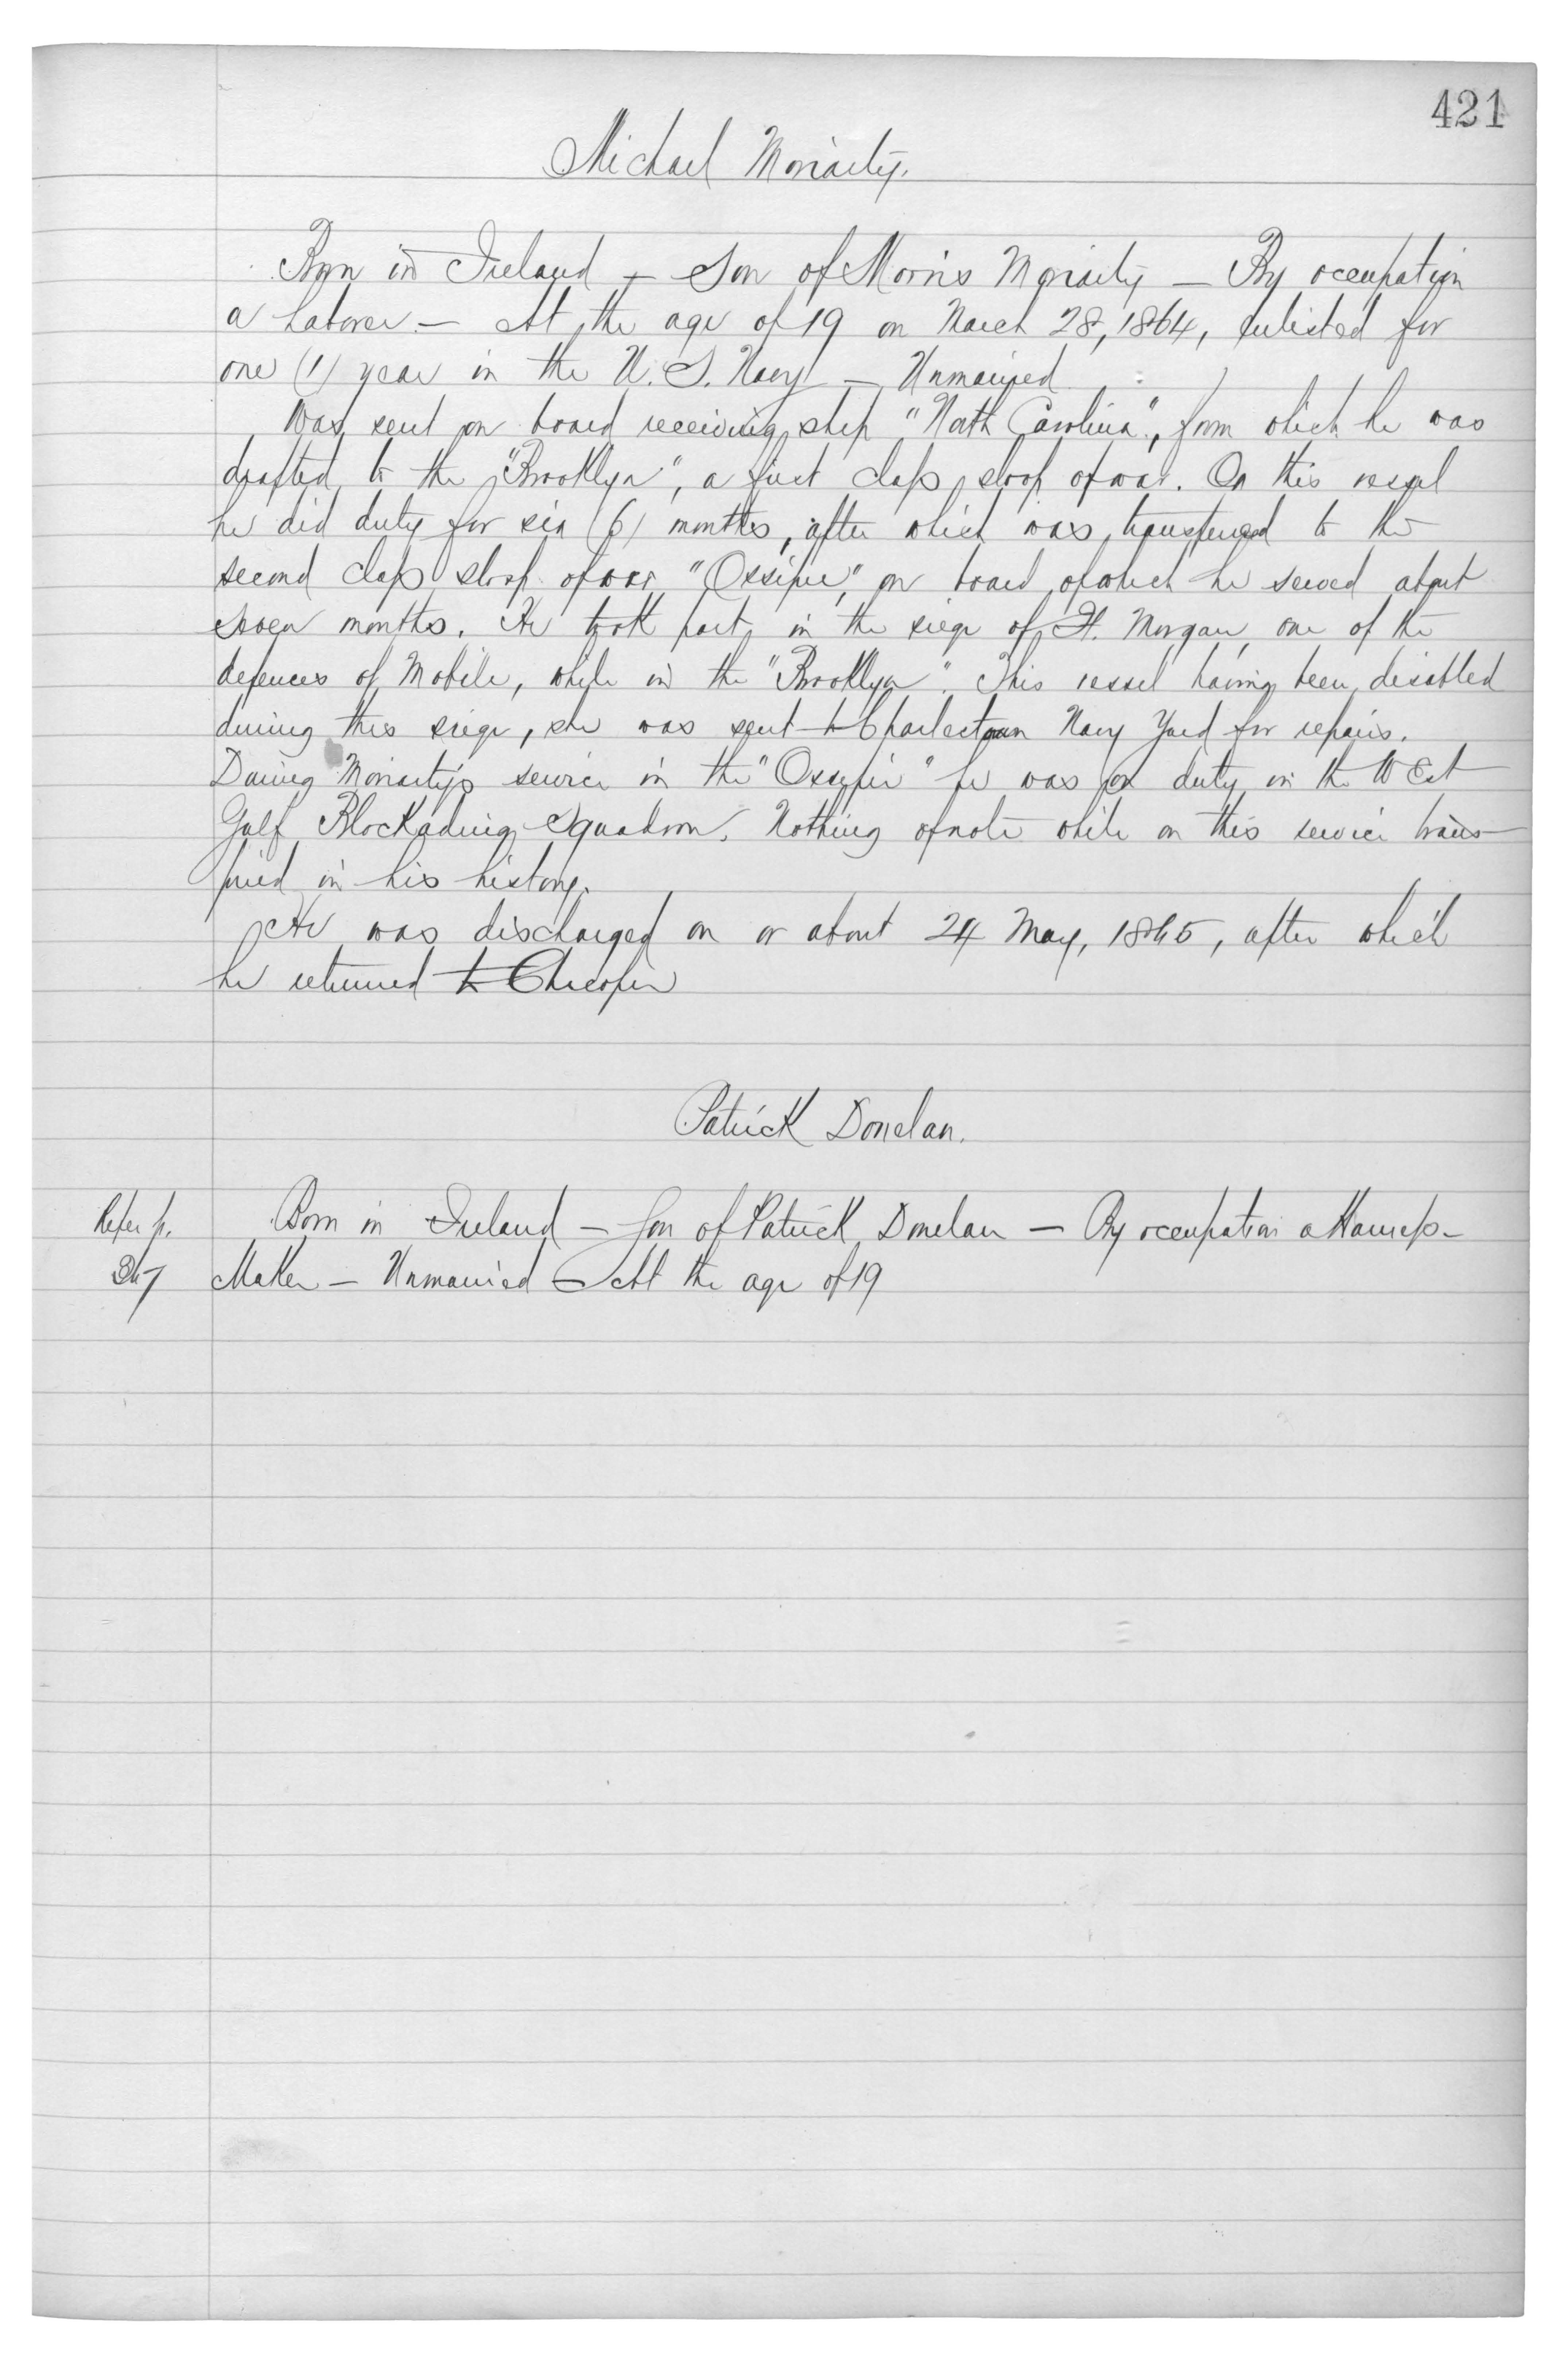 421
Michael Moriarty.
Born in Ireland — Son of Morris Moriarty — By occupation
a Laborer. — At the age of 19 on March 28, 1864, enlisted for
one (1) year in the U. S. Navy — Unmarried
Was sent on board receiving ship "North Carolina", from which he was
drafted to the "Brooklyn", a first class sloop of war. On this vessel
he did duty for six (6) months, after which was transferred to the
second class sloop of war "Ossipee", on board of which he served about
seven months. He took part in the siege of Ft. Morgan, one of the
defences of Mobile, while in the "Brooklyn". This vessel having been disabled
during this siege, she was sent to Charlestown Navy Yard for repairs.
During Moriarty's service in the "Ossipee" he was on duty in the West
Gulf Blockading Squadron. Nothing of note while on this service trans-
pired in his history.
He was discharged on or about 24 May, 1865, after which
he returned to Chicopee
Patrick Donelan.
Refer p. Born in Ireland — Son of Patrick Donelan — By occupation a Harness-
Maker — Unmarried — At the age of 19